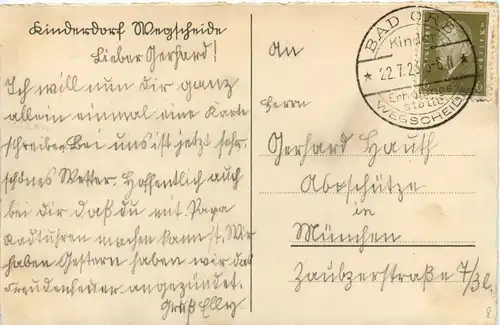 Kinderdorf Wegscheide
Lieber Gerhard!
Ich will nun dir ganz
allein einmal eine Karte
schreiben. Bei uns ist jetzt sehr
schönes Wetter. Hoffentlich auch
bei dir daß du mit Papa
Radtuhren machen kannst. Wir
haben Gestern haben wir das
Freudenfeuer angezündet.
Gruß Elly
An
Herrn
Gerhard Hauth
Abschütze
in
München
Zaubzerstraße 7/3l.
BAD ORB
Kind
22.7.29
Erholungs
stätte
WEGSCHEID
8